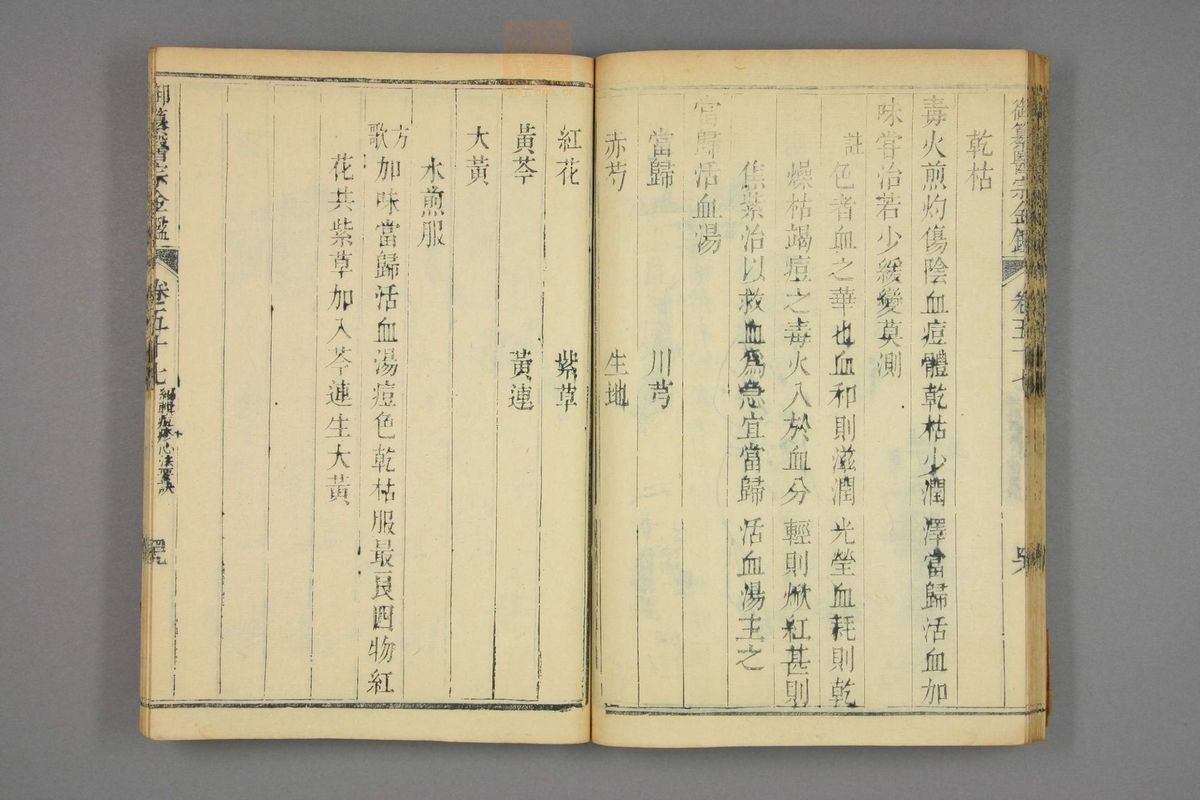 御纂醫宗金鑑 卷五十七
乾枯
毒火煎灼傷陰血痘體乾枯少潤澤當歸活血加
味嘗治若少緩變莫測
註色者血之華也血和則滋潤光瑩血耗則乾
燥枯竭痘之毒火入於血分輕則焮紅甚則
焦紫治以救血為急宜當歸活血湯主之
當歸活血湯
當歸 川芎
赤芍 生地
紅花 紫草
黃芩 黃連
大黃
水煎服
方歌 加味當歸活血湯痘色乾枯服最良四物紅
花共紫草加入芩連生大黃
御纂醫宗金鑑 卷五十七 編輯痘疹心法要訣